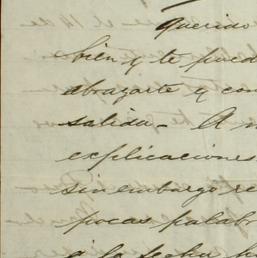 Querido
bien y te pued
abrazarte y con
salida. A m
explicaciones
sin embargo re
pocas palab
a la fecha h